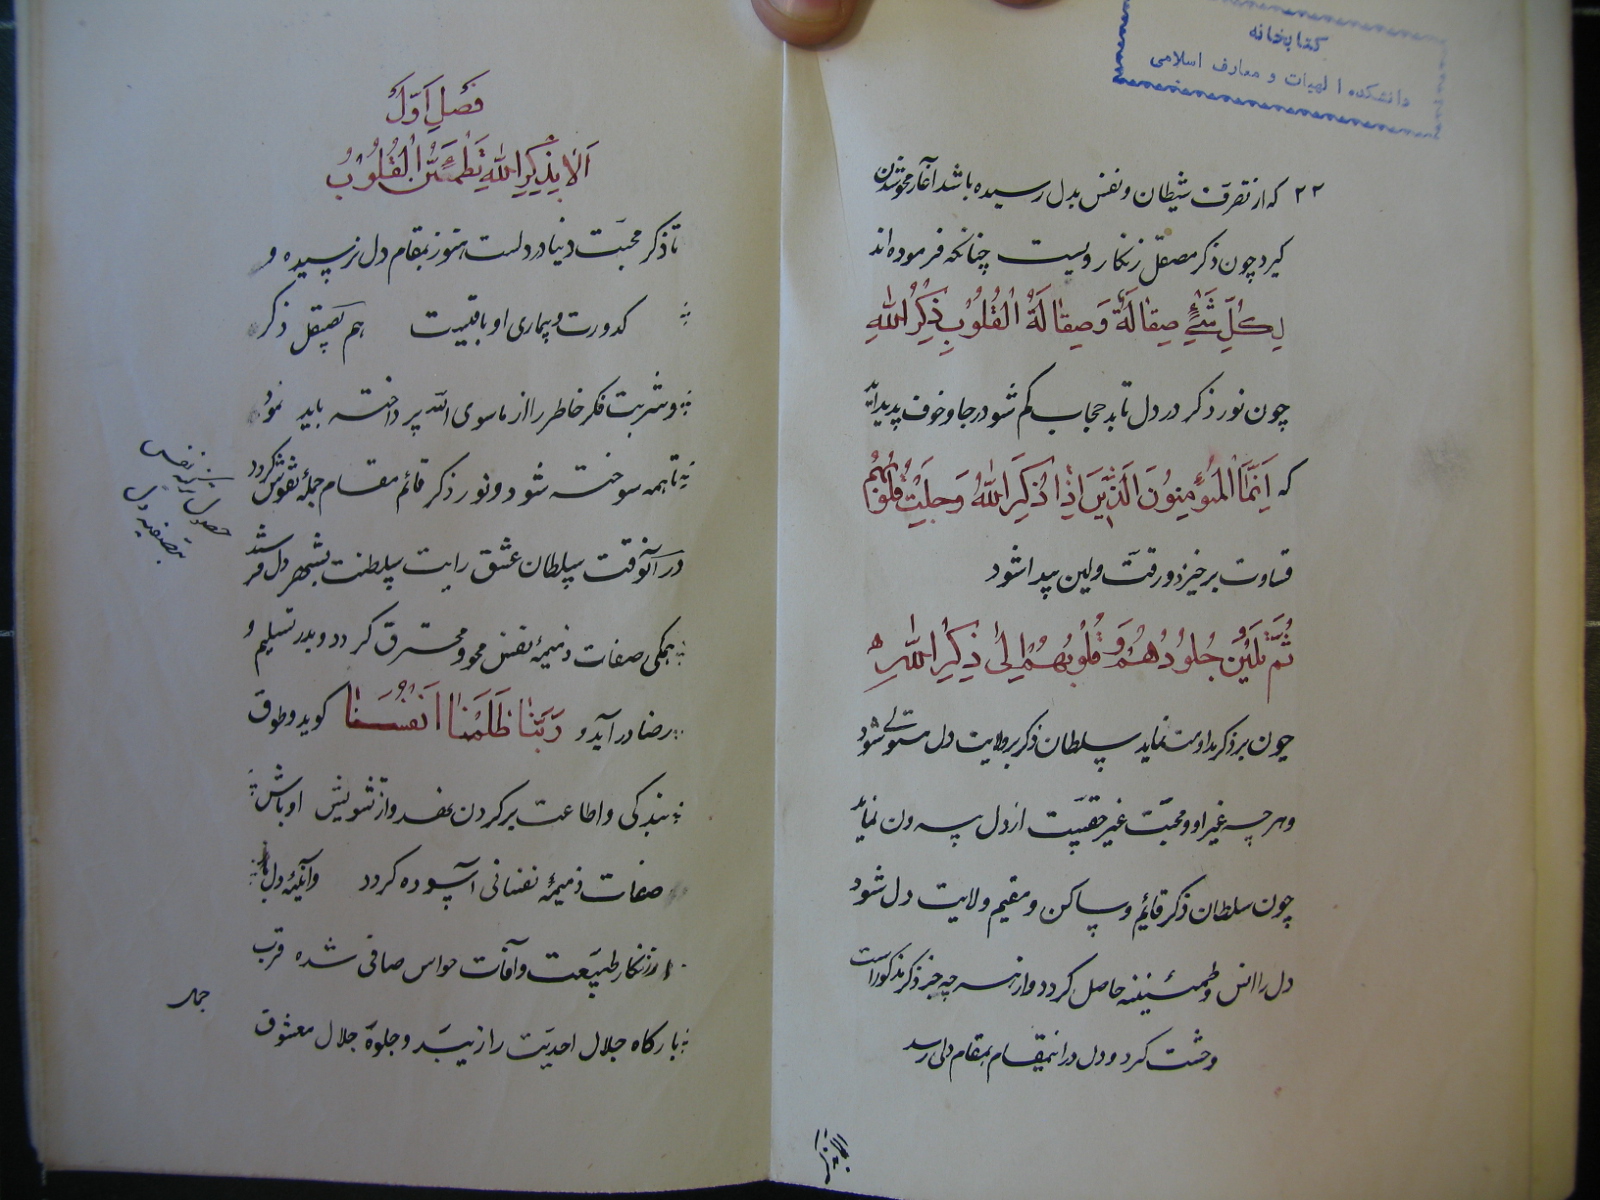 کتابخانه
دانشکده الهیات و معارف اسلامی
۲۲ که از تصرف شیطان و نفس بدل رسیده باشد آغاز محو شدن
کیرد چون ذکر مصقل زنکار رویست چنانکه فرموده‌اند
لِکُلِّ شَیْءٍ صِقالَةٌ وَصِقالَةُ الْقُلُوبِ ذِکْرُ اللّٰهِ
چون نور ذکر در دل تابد حجاب کم شود رجا و خوف پدید آید
که اِنَّمَا الْمُؤْمِنُونَ الَّذینَ اِذا ذُکِرَ اللّٰهُ وَجِلَتْ قُلُوبُهُمْ
قساوت برخیزد و رقت و لین پیدا شود
ثُمَّ تَلینُ جُلُودُهُمْ وَ قُلُوبُهُمْ اِلیٰ ذِکْرِ اللّٰهِ
چون بر ذکر مداومت نماید سلطان ذکر بر ولایت دل مستولی شود
و هر چه غیر او و محبت غیر حقیست از دل بیرون نماید
چون سلطان ذکر قایم و ساکن و مقیم ولایت دل شود
دل را انس و طمئنینه حاصل کردد و از هر چه جز ذکر مذکور است
وحشت کرد و دل در اینمقام بمقام دلی رسد
فصل اوّل
اَلا بِذِکْرِ اللّٰهِ تَطْمَئِنُّ الْقُلُوبُ
تا ذکر محبّت دنیا در دلست هنوز بمقام دل نرسیده و
کدورت و بیماری او باقیست هم بصیقل ذکر
و شربت فکر خاطر را از ماسوی اللّه پرداخته باید نمود
تا همه سوخته شود و نور ذکر قائم مقام جملهٔ نقوش کردد
در آنوقت سلطان عشق رایت سلطنت بشهر دل فرستد
همکی صفات ذمیمهٔ نفس محو و محترق کردد و بدر تسلیم و
رضا در آید و رَبَّنا ظَلَمْنا اَنْفُسَنا کوید و طوق
بندکی و اطاعت بر کردن نهد و از تشویش اوباش
صفات ذمیمهٔ نفسانی آسوده کردد و آئینهٔ دل
از زنکار طبیعت و آفات حواس صافی شده قرب
بارکاه جلال احدیت را زیبد و جلوهٔ جلال معشوق
حصول تزکیه نفس
بتصفیه دل
جمال